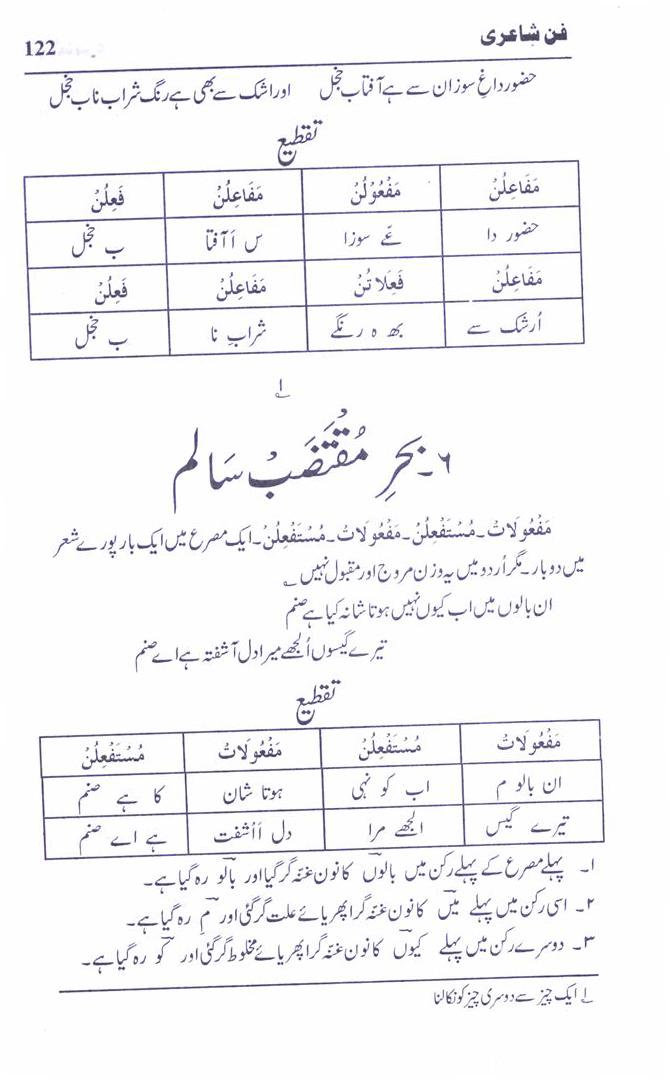 فن شاعری 122
حضور داغِ سوزان سے ہے آفتاب خجل اور اشک سے بھی ہے رنگ شراب ناب خجل
تقطیع
مَفَاعِلُنْ مَفْعُوْلُنْ مَفَاعِلُنْ فَعِلُنْ
حضور دا غے سوزا س اَ آفتا ب خجل
مَفَاعِلُنْ فَعِلَاتُنْ مَفَاعِلُنْ فَعِلُنْ
اُرشک سے بھ ہ رنگے شرابِ نا ب خجل
؎۱
۶۔ بحرِ مُقْتَضَبْ سَالم
مَفْعُولَاتُ۔ مُسْتَفْعِلُنْ۔ مَفْعُولَاتُ۔ مُسْتَفْعِلُنْ۔ ایک مصرع میں ایک بار پورے شعر
میں دو بار۔ مگر اُردو میں یہ وزن مروج اور مقبول نہیں ؎
ان بالوں میں اب کیوں نہیں ہوتا شانہ کیا ہے صنم
تیرے گیسوں اُلجھے میرا دل آشفتہ ہے اے صنم
تقطیع
مَفْعُولَاتُ مُسْتَفْعِلُنْ مَفْعُولَاتُ مُسْتَفْعِلُنْ
ان بالو م اب کو نہی ہوتا شان کا ہے صنم
تیرے گیس الجھے مرا دل اَاُشفت ہے اے صنم
۱۔ پہلے مصرع کے پہلے رکن میں بالوں کا نون غنّہ گر گیا اور بالو رہ گیا ہے۔
۲۔ اسی رکن میں پہلے میں کا نون غنّہ گرا پھر یائے علت گر گئی اور مِ رہ گیا ہے۔
۳۔ دوسرے رکن میں پہلے کیوں کا نون غنّہ گرا پھر یائے مخلوط گر گئی اور کو رہ گیا ہے۔
؎۱ ایک چیز سے دوسری چیز کو نکالنا